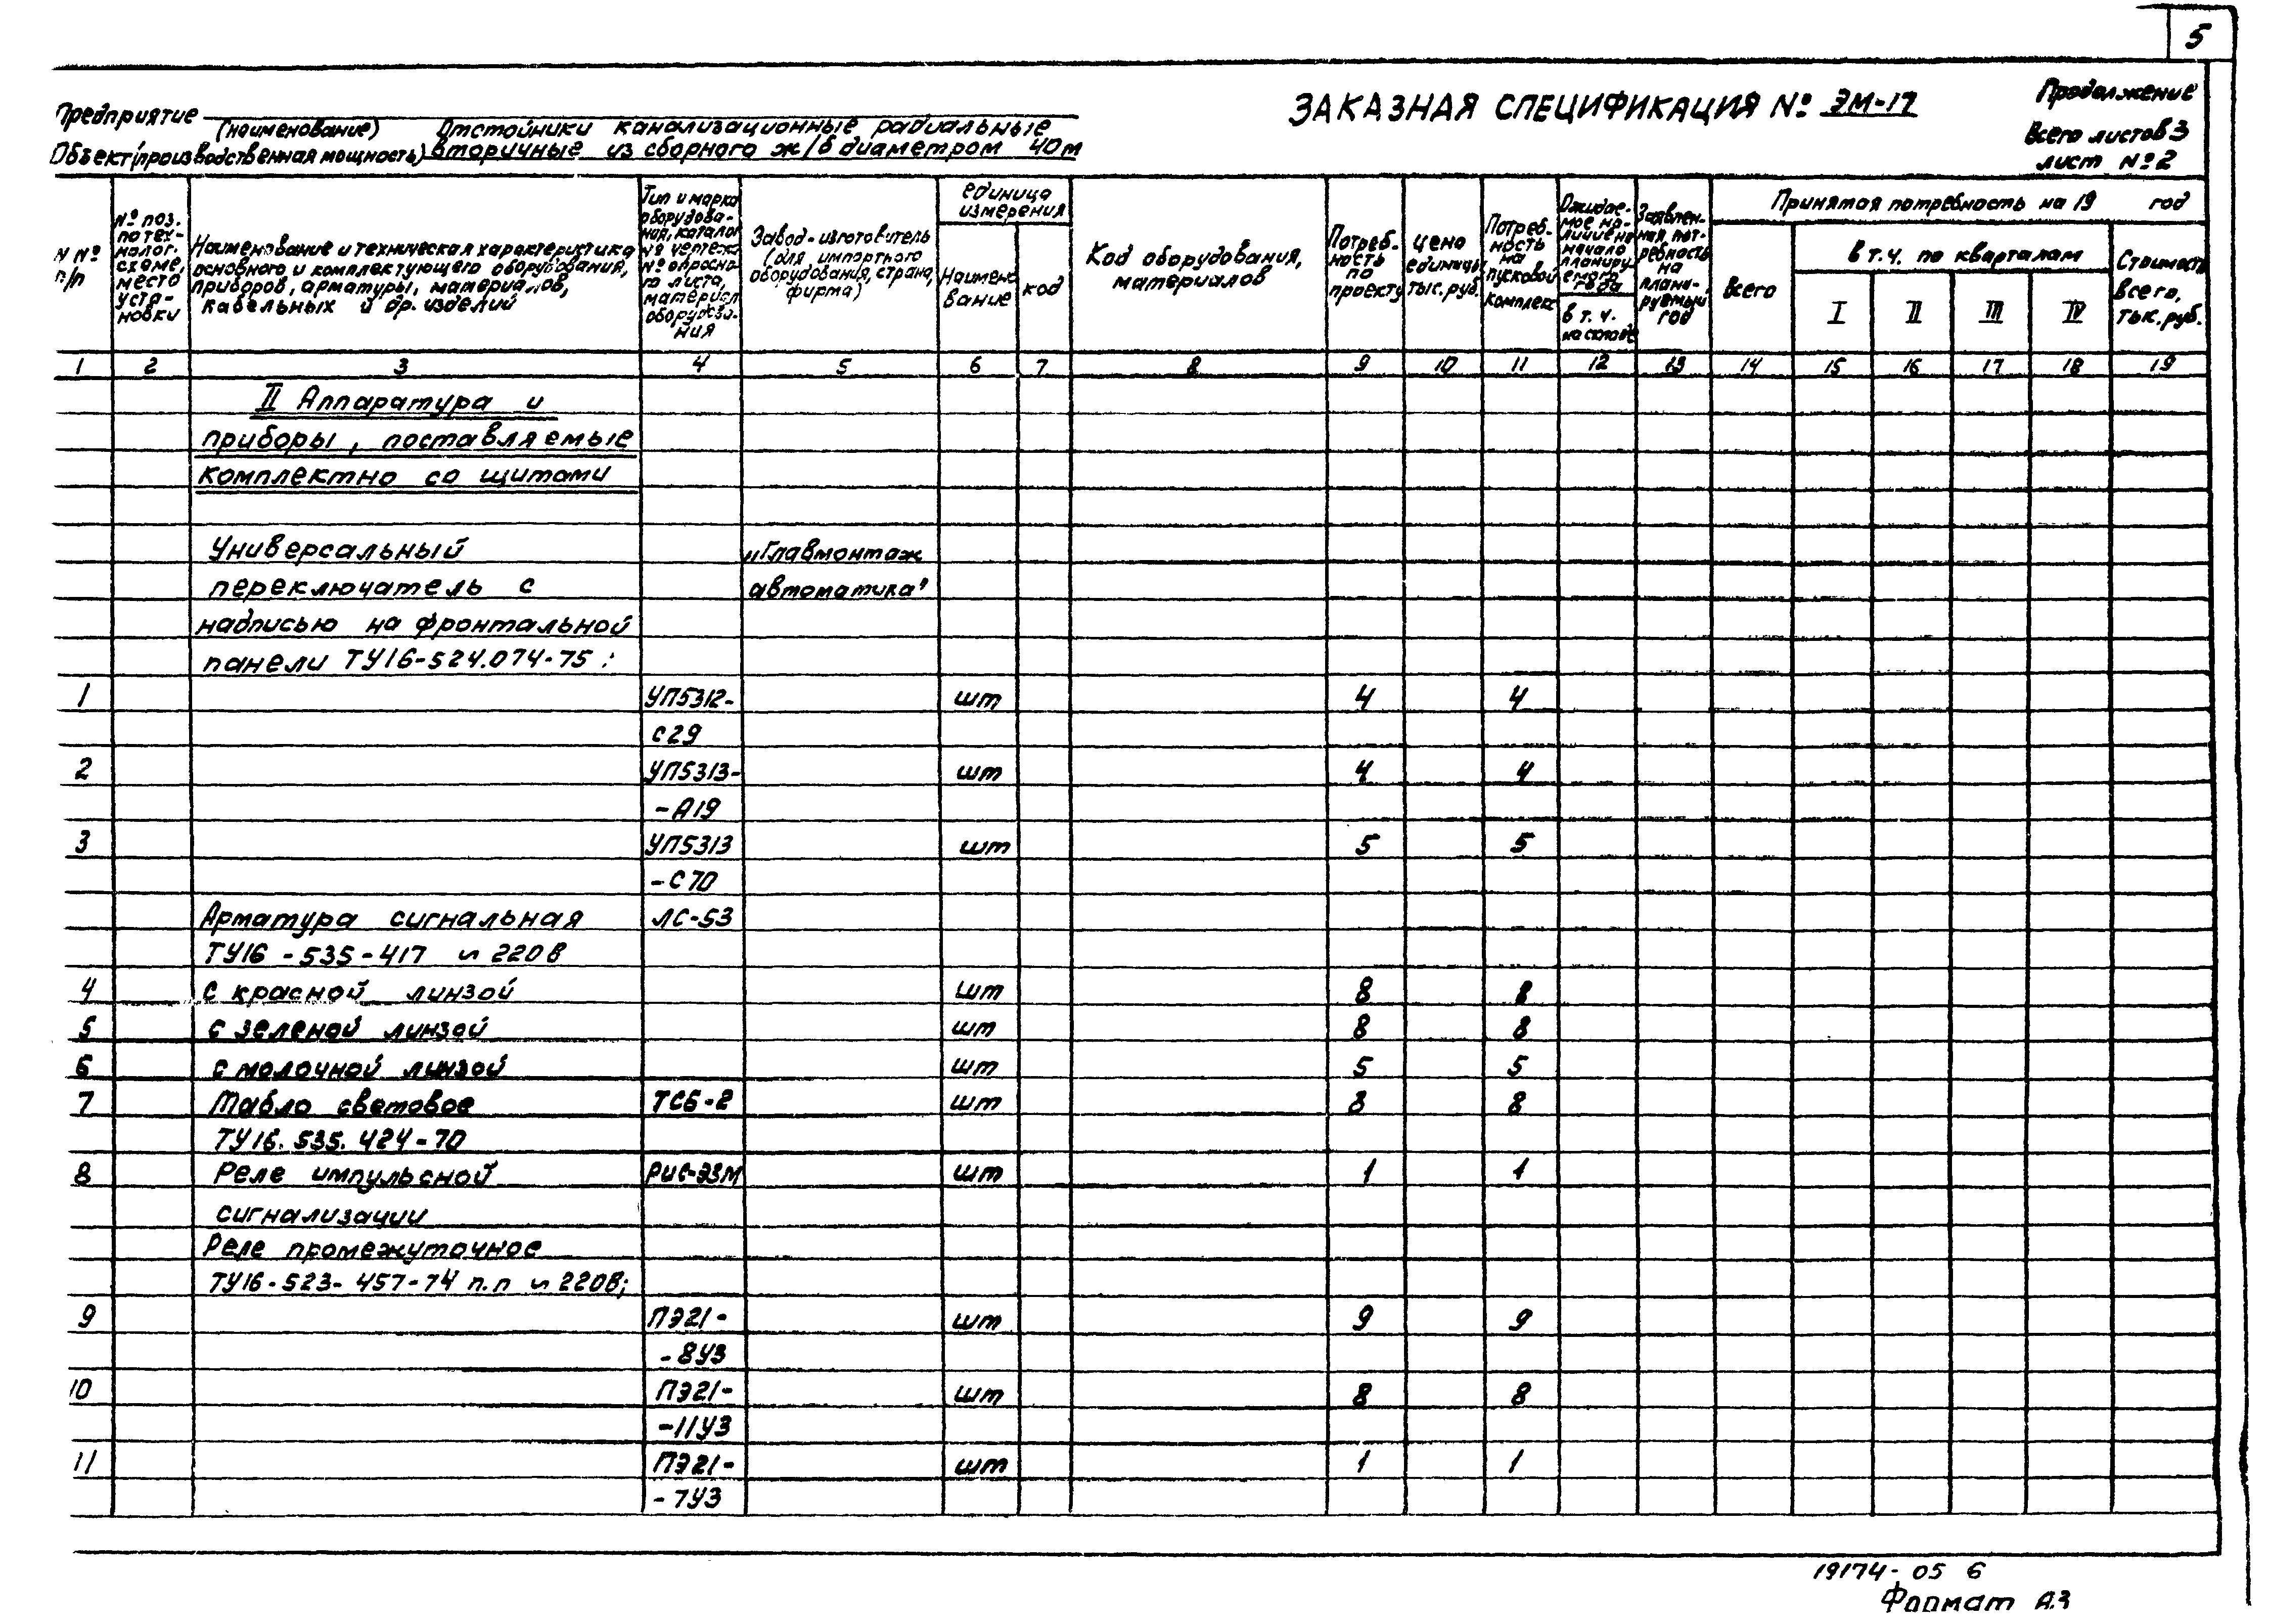 5
Предприятие
(наименование)
ЗАКАЗНАЯ СПЕЦИФИКАЦИЯ № ЭМ-17
Продолжение
Всего листов 3
лист № 2
Отстойники канализационные радиальные
Объект(производственная мощность) вторичные из сборного ж/б диаметром 40м
N№ п/п
№ поз. по тех-
нолог.
схеме,
место
уста-
новки
Наименование и техническая характеристика
основного и комплектующего оборудования,
приборов, арматуры, материалов,
кабельных и др. изделий
Тип и марка
оборудова-
ния, каталог
№ чертежа
№ опросно-
го листа,
материал
оборудова-
ния
Завод-изготовитель
(для импортного
оборудования, страна,
фирма)
единица
измерения
Наимено
вание
код
Код оборудования,
материалов
Потреб-
ность
по
проекту
цена
единицы
тыс. руб.
Потреб-
ность
на
пусковой
комплекс
Ожидае-
мое на-
личие на
начало
планиру-
емого
года
в т. ч.
на складе
Заявлен-
ная пот-
ребность
на
плани-
руемый
год
Принятая потребность на 19 год
всего
в т. ч. по кварталам
I II III IV
Стоимость
всего,
тыс. руб.
1 2 3 4 5 6 7 8 9 10 11 12 13 14 15 16 17 18 19
II Аппаратура и
приборы, поставляемые
комплектно со щитами
Универсальный „Главмонтаж
переключатель с автоматика"
надписью на фронтальной
панели ТУ16-524.074-75 :
1 УП5312- шт 4 4
с29
2 УП5313- шт 4 4
-А19
3 УП5313 шт 5 5
-С70
Арматура сигнальная ЛС-53
ТУ16 -535-417 ~ 220в
4 С красной линзой шт 8 8
5 с зеленой линзой шт 8 8
6 с молочной линзой шт 5 5
7 Табло световое ТСБ-2 шт 8 8
ТУ16. 535. 424-70
8 Реле импульсной РИС-Э3М шт 1 1
сигнализации
Реле промежуточное
ТУ16-523-457-74 п.п ~ 220В;
9 ПЭ21- шт 9 9
-8У3
10 ПЭ21- шт 8 8
-11У3
11 ПЭ21- шт 1 1
-7У3
19174-05 6
Формат А3